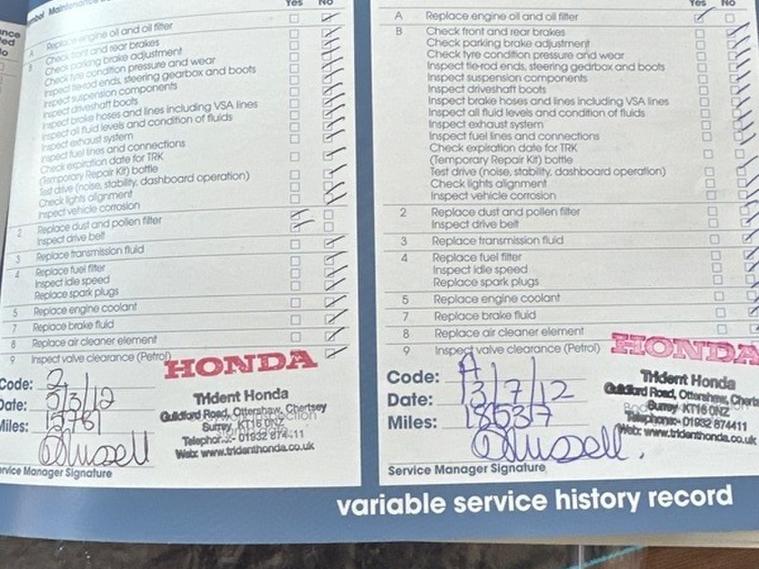 Yes No
A Replace engine oil and oil filter
B Check front and rear brakes
Check parking brake adjustment
Check tyre condition pressure and wear
Inspect tie-rod ends, steering gearbox and boots
Inspect suspension components
Inspect driveshaft boots
Inspect brake hoses and lines including VSA lines
Inspect all fluid levels and condition of fluids
Inspect exhaust system
Inspect fuel lines and connections
Check expiration date for TRK
(Temporary Repair Kit) bottle
Test drive (noise, stability, dashboard operation)
Check lights alignment
Inspect vehicle corrosion
2 Replace dust and pollen filter
Inspect drive belt
3 Replace transmission fluid
4 Replace fuel filter
Inspect idle speed
Replace spark plugs
5 Replace engine coolant
7 Replace brake fluid
8 Replace air cleaner element
9 Inspect valve clearance (Petrol)
HONDA
Code: 2
Date: 5/3/12
Miles:
Trident Honda
Guildford Road, Ottershaw, Chertsey
Surrey, KT16 0NZ
Telephone:- 01932 874411
Web: www.tridenthonda.co.uk
Service Manager Signature
Yes No
A Replace engine oil and oil filter
B Check front and rear brakes
Check parking brake adjustment
Check tyre condition pressure and wear
Inspect tie-rod ends, steering gearbox and boots
Inspect suspension components
Inspect driveshaft boots
Inspect brake hoses and lines including VSA lines
Inspect all fluid levels and condition of fluids
Inspect exhaust system
Inspect fuel lines and connections
Check expiration date for TRK
(Temporary Repair Kit) bottle
Test drive (noise, stability, dashboard operation)
Check lights alignment
Inspect vehicle corrosion
2 Replace dust and pollen filter
Inspect drive belt
3 Replace transmission fluid
4 Replace fuel filter
Inspect idle speed
Replace spark plugs
5 Replace engine coolant
7 Replace brake fluid
8 Replace air cleaner element
9 Inspect valve clearance (Petrol)
HONDA
Code: A
Date: 13/7/12
Miles: 18537
Trident Honda
Guildford Road, Ottershaw, Cherts
Surrey KT16 0NZ
Telephone:- 01932 874411
Web: www.tridenthonda.co.uk
Service Manager Signature
variable service history record